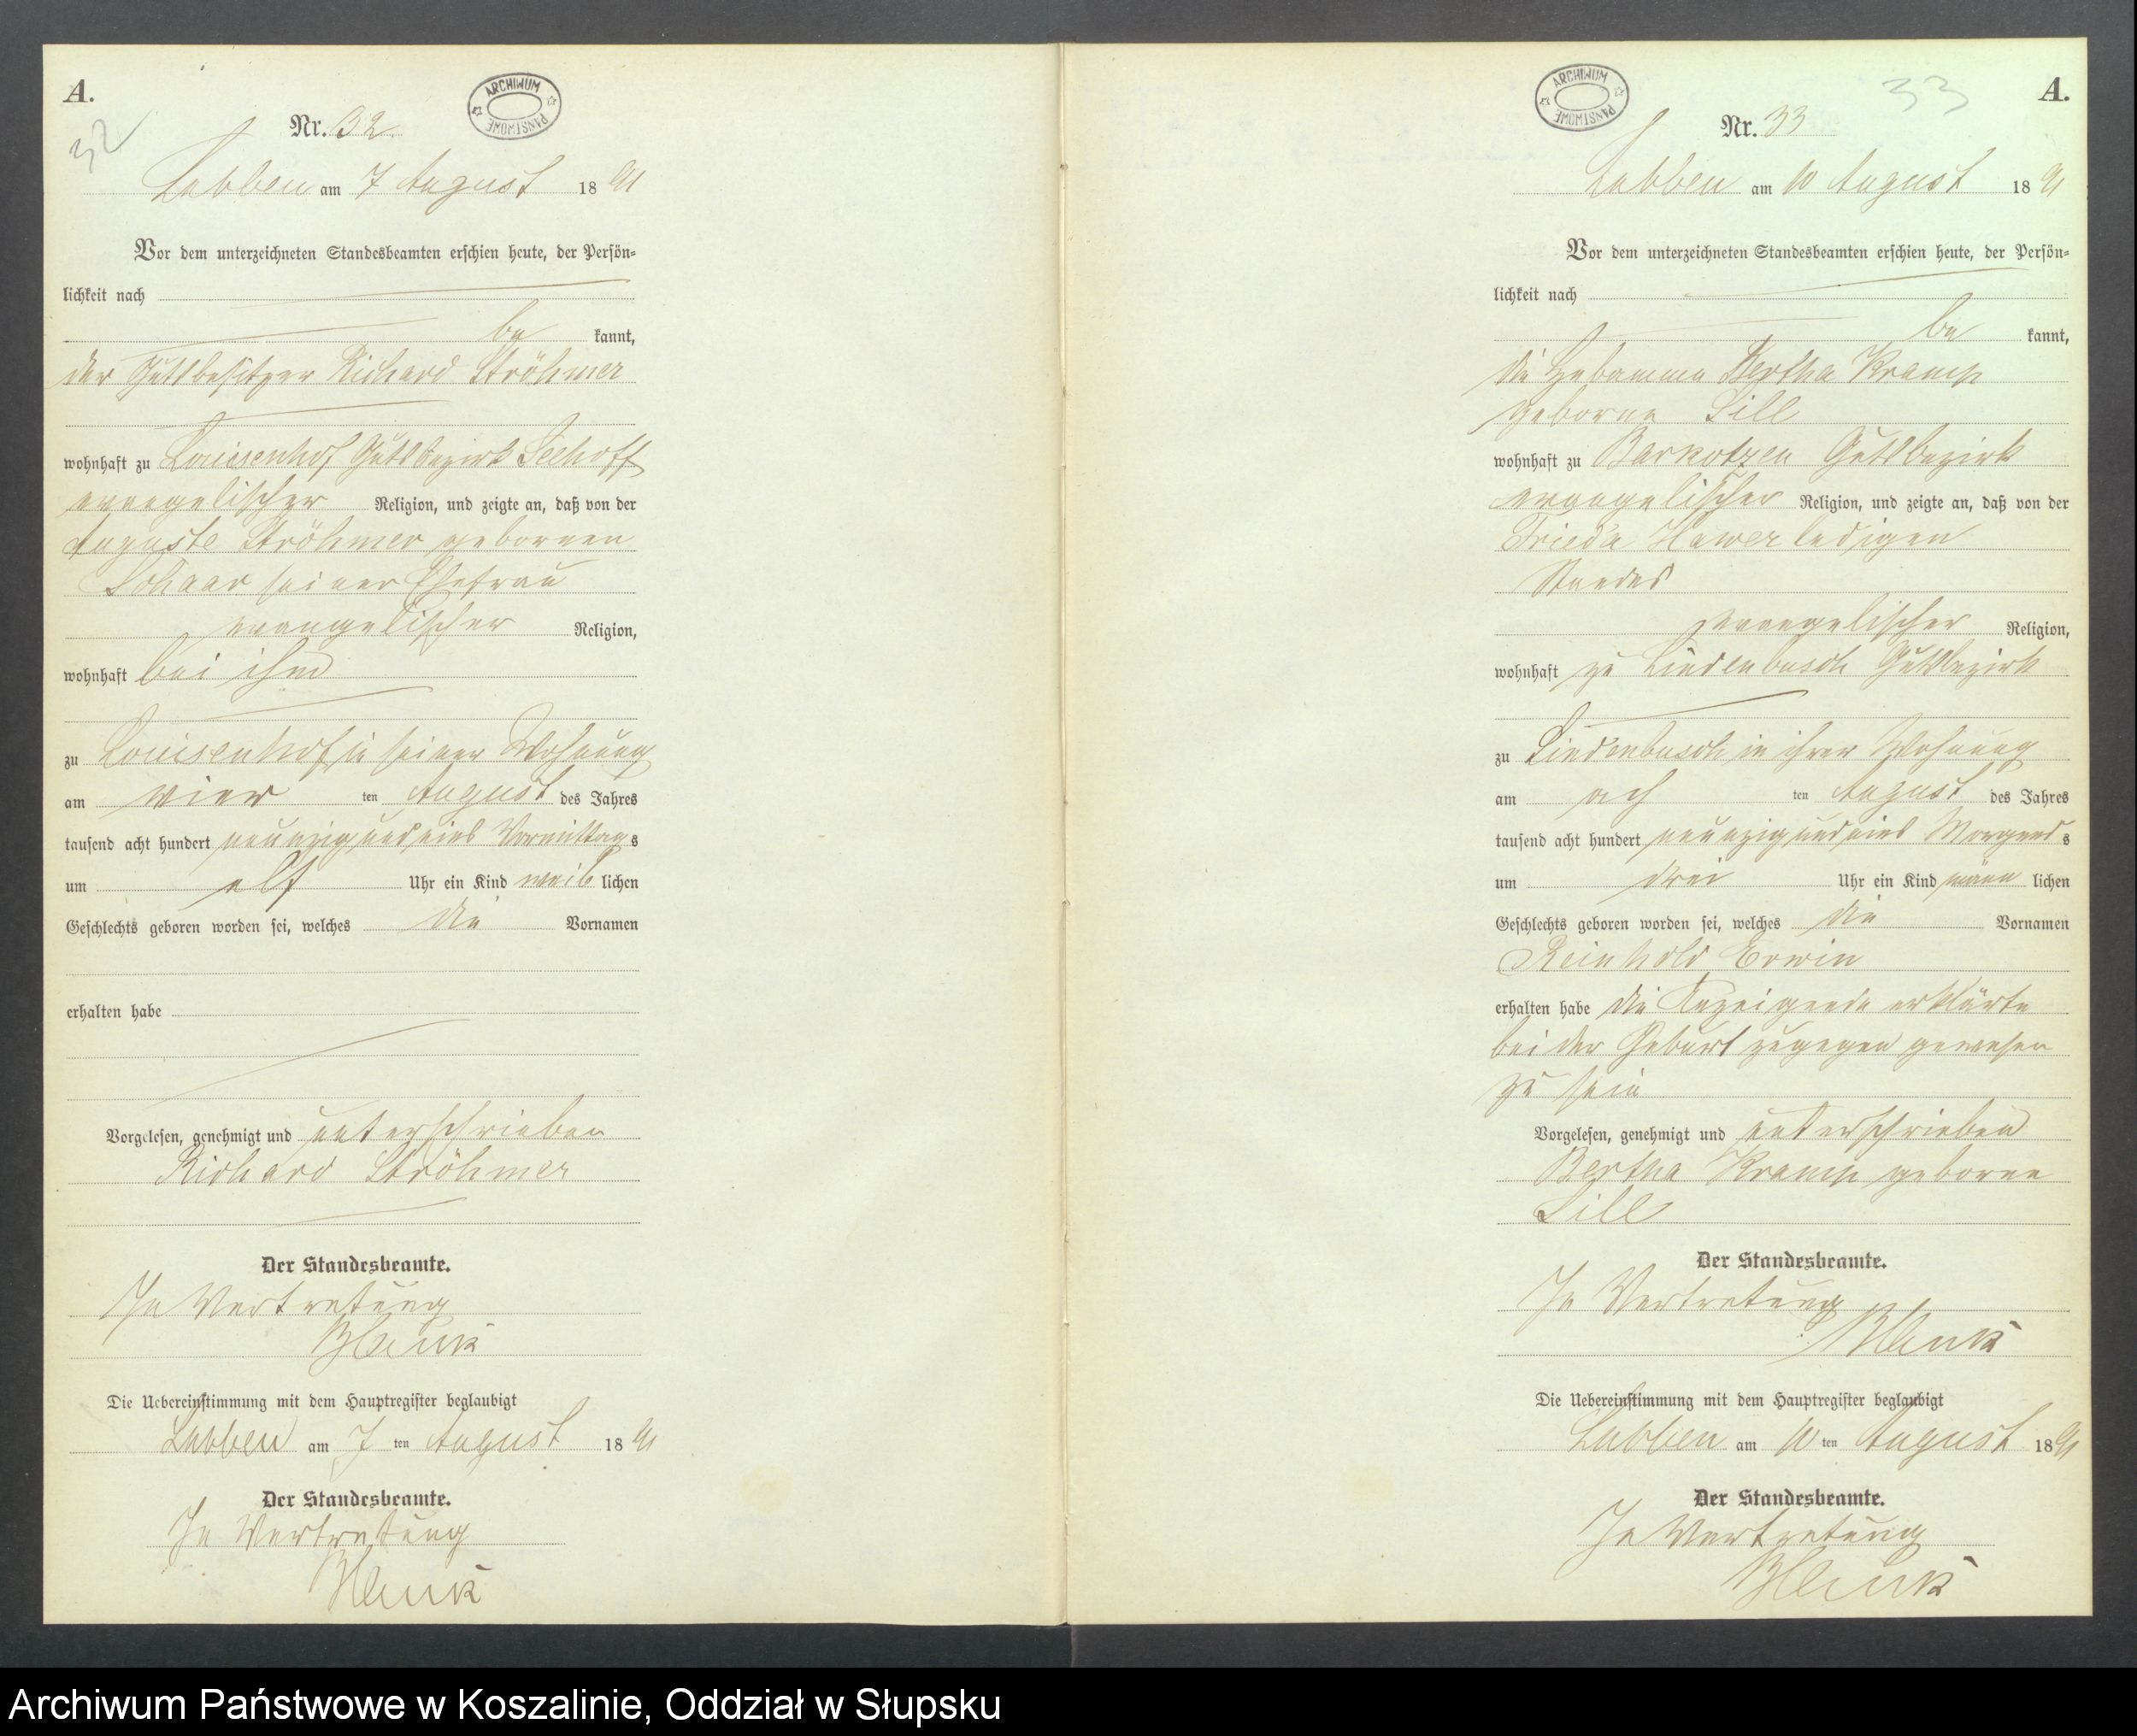 A.
32
Nr. 32
ARCHIWUM PAŃSTWOWE
Labben am 7 August 1891
Vor dem unterzeichneten Standesbeamten erschien heute, der Persön-
lichkeit nach
be kannt,
der Gutsbesitzer Richard Ströhmer
wohnhaft zu Louisenhof Gutsbezirk Seehoff
evangelischer Religion, und zeigte an, daß von der
Auguste Ströhmer gebornen
Schaar seiner Ehefrau
evangelischer Religion,
wohnhaft bei ihm
zu Louisenhof in seiner Wohnung
am vier ten August des Jahres
tausend acht hundert neunzig und eins Vormittag s
um elf Uhr ein Kind weib lichen
Geschlechts geboren worden sei, welches die Vornamen
erhalten habe
Vorgelesen, genehmigt und unterschrieben
Richard Ströhmer
Der Standesbeamte.
In Vertretung
Die Uebereinstimmung mit dem Hauptregister beglaubigt
Labben am 7 ten August 1891
Der Standesbeamte.
In Vertretung
A.
33
Nr. 33
ARCHIWUM PAŃSTWOWE
Labben am 10 August 1891
Vor dem unterzeichneten Standesbeamten erschien heute, der Persön-
lichkeit nach
be kannt,
die Hebamme Bertha Kramp
geborne Sill
wohnhaft zu Barkotzen Gutsbezirk
evangelischer Religion, und zeigte an, daß von der
Frieda Hewer ledigen
Standes
evangelischer Religion,
wohnhaft zu Lindenbusch Gutsbezirk
zu Lindenbusch in ihrer Wohnung
am ach ten August des Jahres
tausend acht hundert neunzig und eins Morgends s
um drei Uhr ein Kind männ lichen
Geschlechts geboren worden sei, welches die Vornamen
Reinhold Erwin
erhalten habe die Anzeigende erklärte
bei der Geburt zugegen gewesen
zu sein
Vorgelesen, genehmigt und unterschrieben
Bertha Kramp geborne
Sill
Der Standesbeamte.
In Vertretung
Die Uebereinstimmung mit dem Hauptregister beglaubigt
Labben am 10 ten August 1891
Der Standesbeamte.
In Vertretung
Archiwum Państwowe w Koszalinie, Oddział w Słupsku